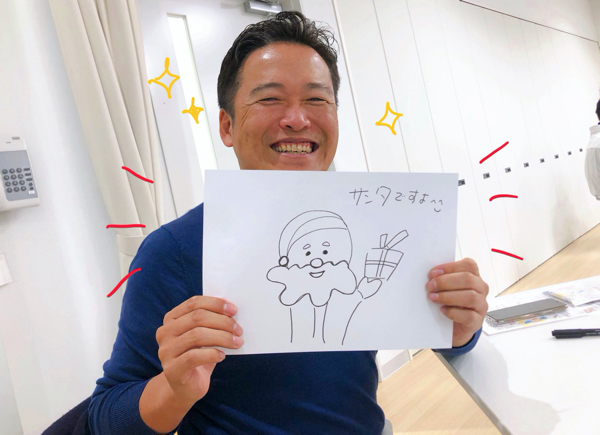 サンタですよ